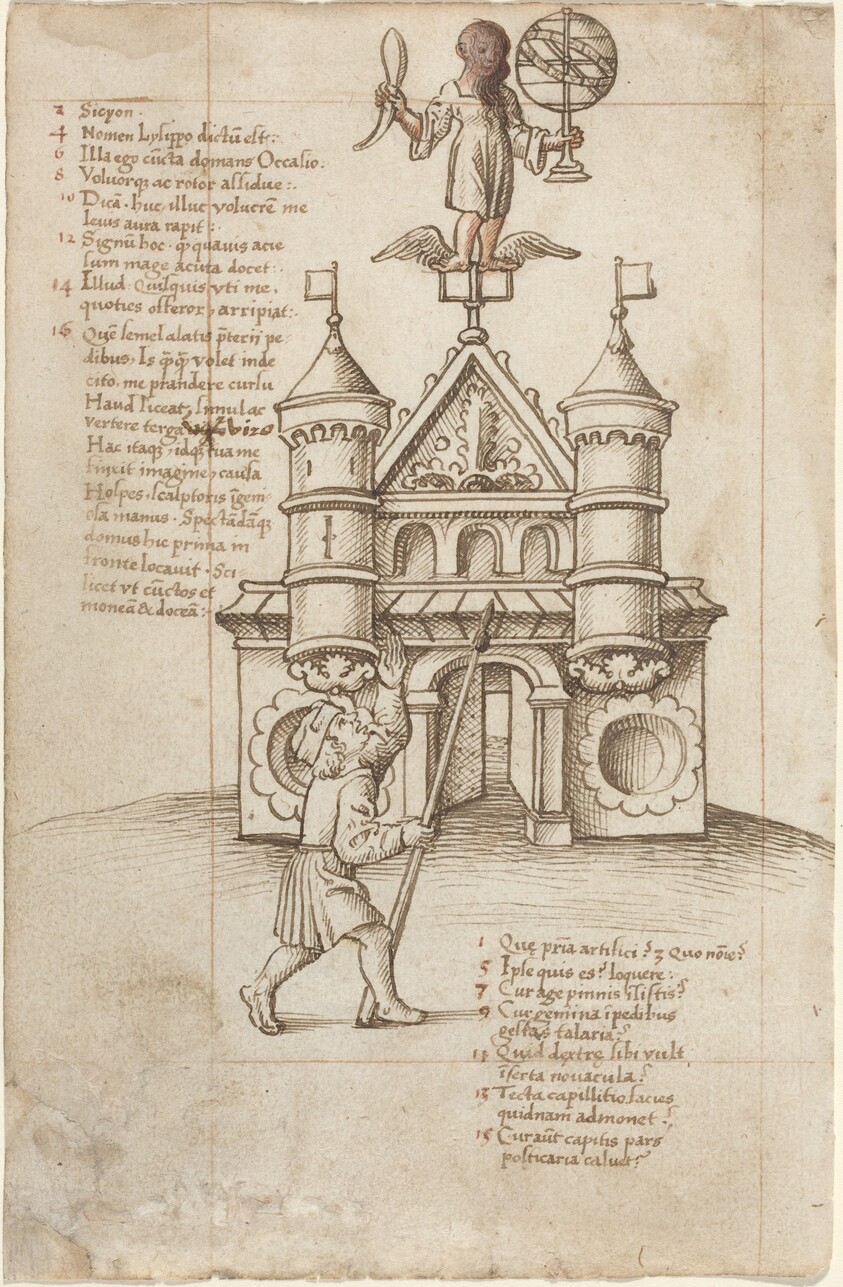 2 Sicyon.
4 Nomen Lysippo dictũ est:
6 Illa ego cũcta domans Occasio:
8 Voluorq; ac rotor assidue:.
10 Dicã. huc, illuc volucrẽ me
leuis aura rapit:.
12 Signũ hoc. quauis acie
sum mage acuta docet:.
14 Illud. Quisquis vti me,
quoties offeror, arripiat:.
16 Quẽ semel alatis pterii pe
dibus, Is volet inde
cito, me prandere cursu
Haud liceat, simul ac
vertere terga
Hac itaq; idq; tua me
finxit imagine, causa
Hospes, scalptoris ĩgeni
osa manus. Spectãdãq;
domus hic prima in
fronte locauit. Sci
licet vt cũctos et
moneã & doceã:.
1 Quę pr̃ia artifici? 3 Quo nõie?
5 Ipse quis es? loquere:
7 Cur age pinnis ĩsistis?
9 Cur gemina ĩ pedibus
gestas talaria?
11 Quid dextrę sibi vult
ĩserta nouacula?
13 Tecta capillitio facies
quidnam admonet?
15 Cur aũt capitis pars
posticaria caluet?